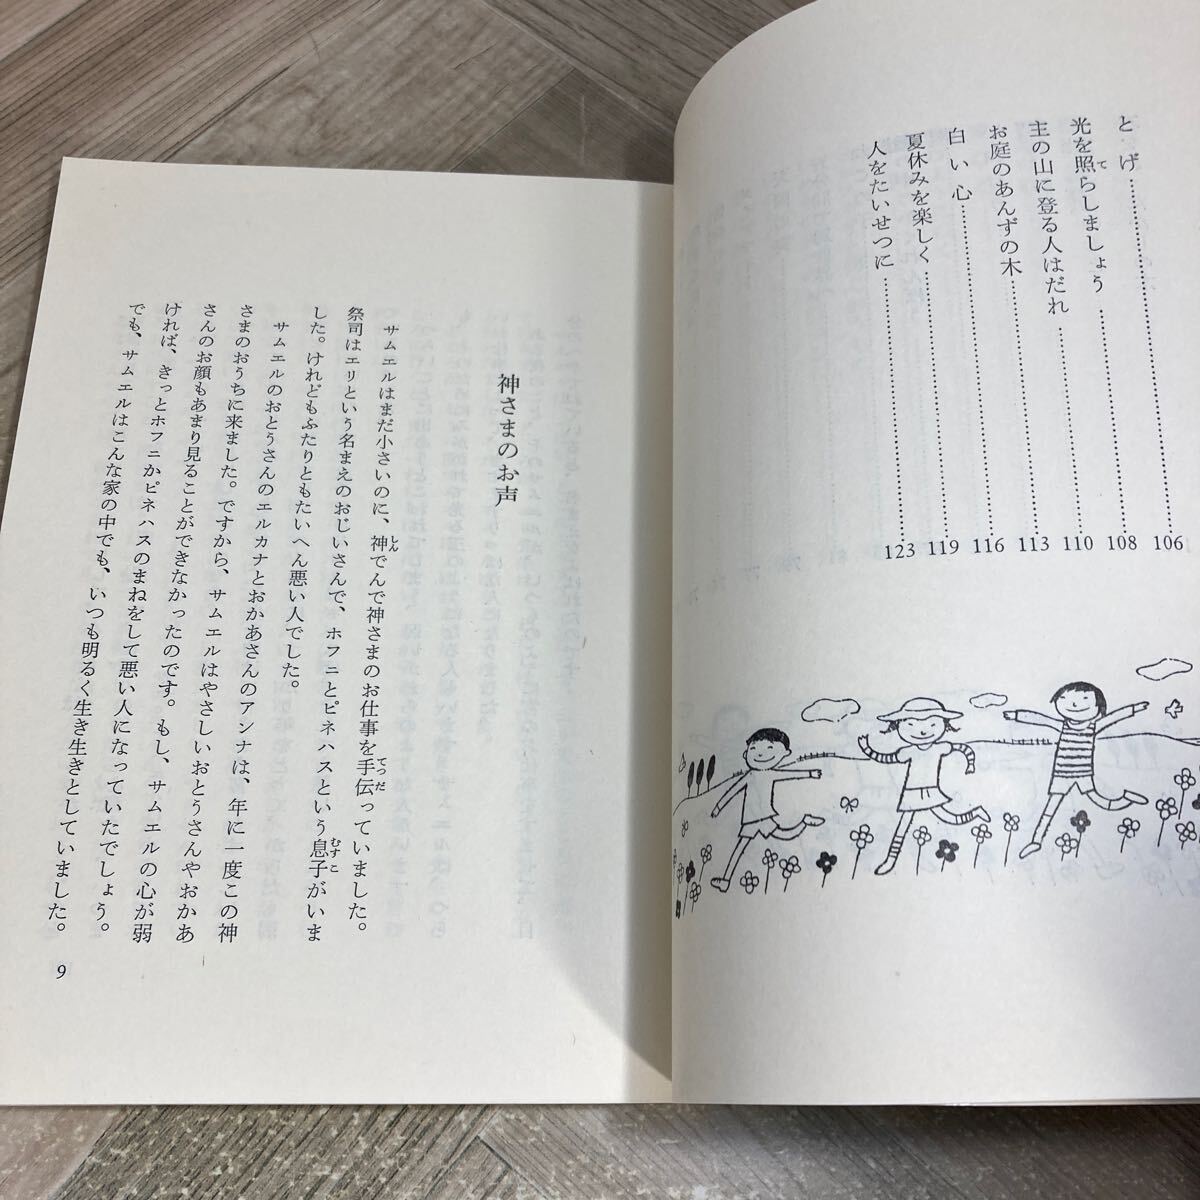 とげ……106
光を照らしましょう……108
主の山に登る人はだれ……110
お庭のあんずの木……113
白い心……116
夏休みを楽しく……119
人をたいせつに……123
神さまのお声
サムエルはまだ小さいのに、神でんで神さまのお仕事を手伝っていました。
祭司はエリという名まえのおじいさんで、ホフニとピネハスという息子がいま
した。けれどもふたりともたいへん悪い人でした。
サムエルのおとうさんのエルカナとおかあさんのアンナは、年に一度この神
さまのおうちに来ました。ですから、サムエルはやさしいおとうさんやおかあ
さんのお顔もあまり見ることができなかったのです。もし、サムエルの心が弱
ければ、きっとホフニかピネハスのまねをして悪い人になっていたでしょう。
でも、サムエルはこんな家の中でも、いつも明るく生き生きとしていました。
9